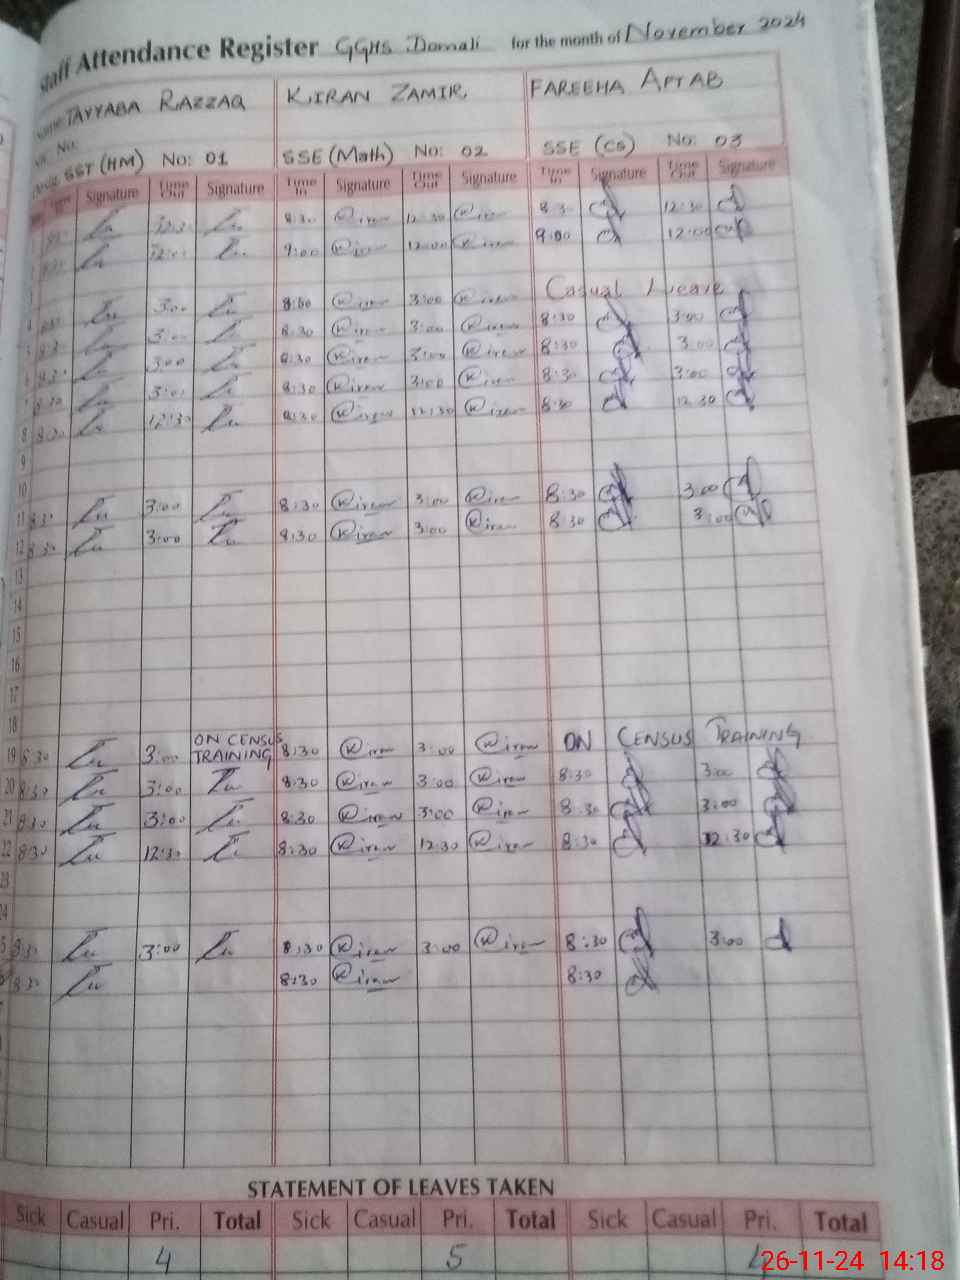 Staff Attendance Register GGHS Domali for the month of November 2024
Name: TAYYABA RAZZAQ KIRAN ZAMIR FAREEHA AFTAB
SST (HM) No: 01 SSE (Math) No: 02 SSE (CS) No: 03
Signature Time Out Signature Time In Signature Time Out Signature Time In Signature Time Out Signature
8:30 Kiran 12:30 Kiran 8:30 12:30
12:00 9:00 Kiran 12:00 Kiran 9:00 12:00
3:00 Kiran 3:00 Kiran Casual Leave
4 3:00 8:30 Kiran 3:00 Kiran 8:30 3:00
5 3:00 8:30 Kiran 3:00 Kiran 8:30 3:00
6 3:00 8:30 Kiran 3:00 Kiran 8:30 3:00
7 8:30 12:30 8:30 Kiran 12:30 Kiran 8:30 12:30
8 8:30
9
10
11 8:30 3:00 8:30 Kiran 3:00 Kiran 8:30 3:00
12 8:30 3:00 8:30 Kiran 3:00 Kiran 8:30 3:00
13
14
15
16
17
18
19 8:30 3:00 ON CENSUS TRAINING 8:30 Kiran 3:00 Kiran ON CENSUS TRAINING
20 8:30 3:00 8:30 Kiran 3:00 Kiran 8:30 3:00
21 8:30 3:00 8:30 Kiran 3:00 Kiran 8:30 3:00
22 8:30 12:30 8:30 Kiran 12:30 Kiran 8:30 12:30
23
24
8:30 3:00 8:30 Kiran 3:00 Kiran 8:30 3:00
8:30 8:30 Kiran 8:30
STATEMENT OF LEAVES TAKEN
Sick Casual Pri. Total Sick Casual Pri. Total Sick Casual Pri. Total
4 5
26-11-24 14:18